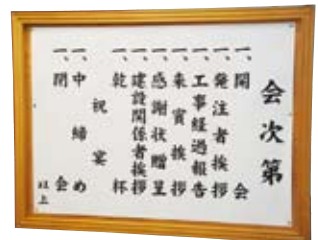 会次第
一、開会
一、発注者挨拶
一、工事経過報告
一、来賓挨拶
一、感謝状贈呈
一、建設関係者挨拶
一、乾杯
祝宴
一、中締め
一、閉会
以上